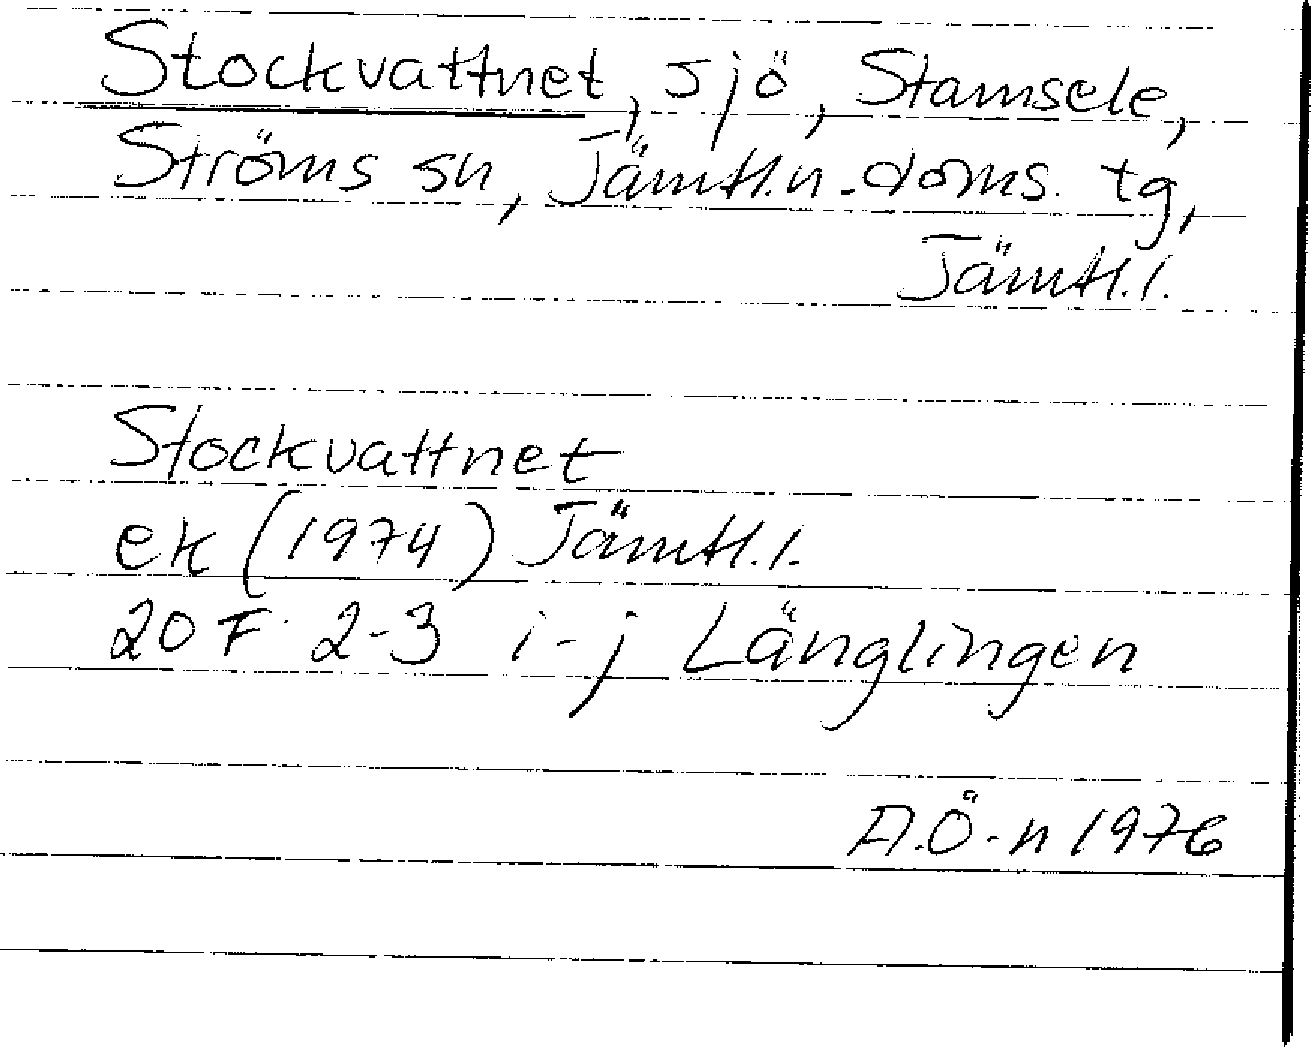 Stockvattnet, sjö, Stamsele,
Ströms sn, Jämtl.n.doms. tg,
Jämtl.l.
Stockvattnet
ek (1974) Jämtl.l.
20 F 2-3 i-j Länglingen
A.Ö-n 1976